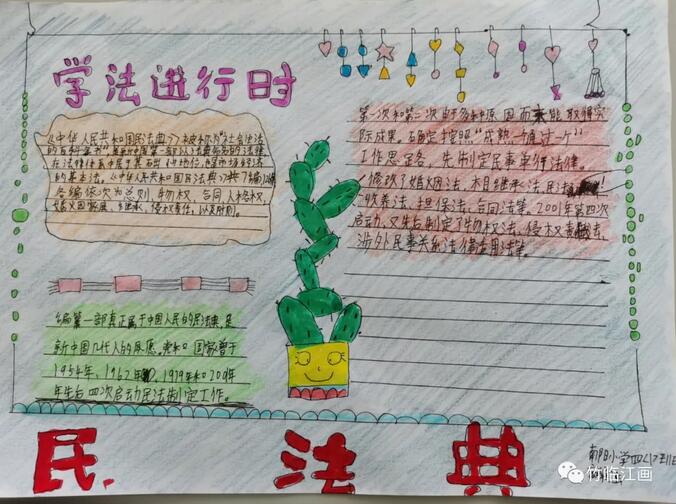 学法进行时
《中华人民共和国民法典》被称为"社会生活
的百科全书"是新中国第一部以法典命名的法律
在法律体系中居于基础性地位,也是市场经济
的基本法。《中华人民共和国民法典》共7编
各编依次为总则、物权、合同、人格权、
婚姻家庭、继承、侵权责任,以及附则。
编纂一部真正属于中国人民的民法典,是
新中国几代人的夙愿。党和国家曾于
1954年、1962年、1979年和2001年
年先后四次启动民法制定工作。
第一次和第二次由于多种原因而未能取得实
际成果。
确定按照"成熟一个通过一个"
工作思路,先制定民事单行法律。
修改了婚姻法,
继承法民法
收养法、担保法、合同法等。2001年第四次
启动,又先后制定了物权法、侵权责任法、
涉外民事关系法律适用法等。
民法典
小学四
竹临江画